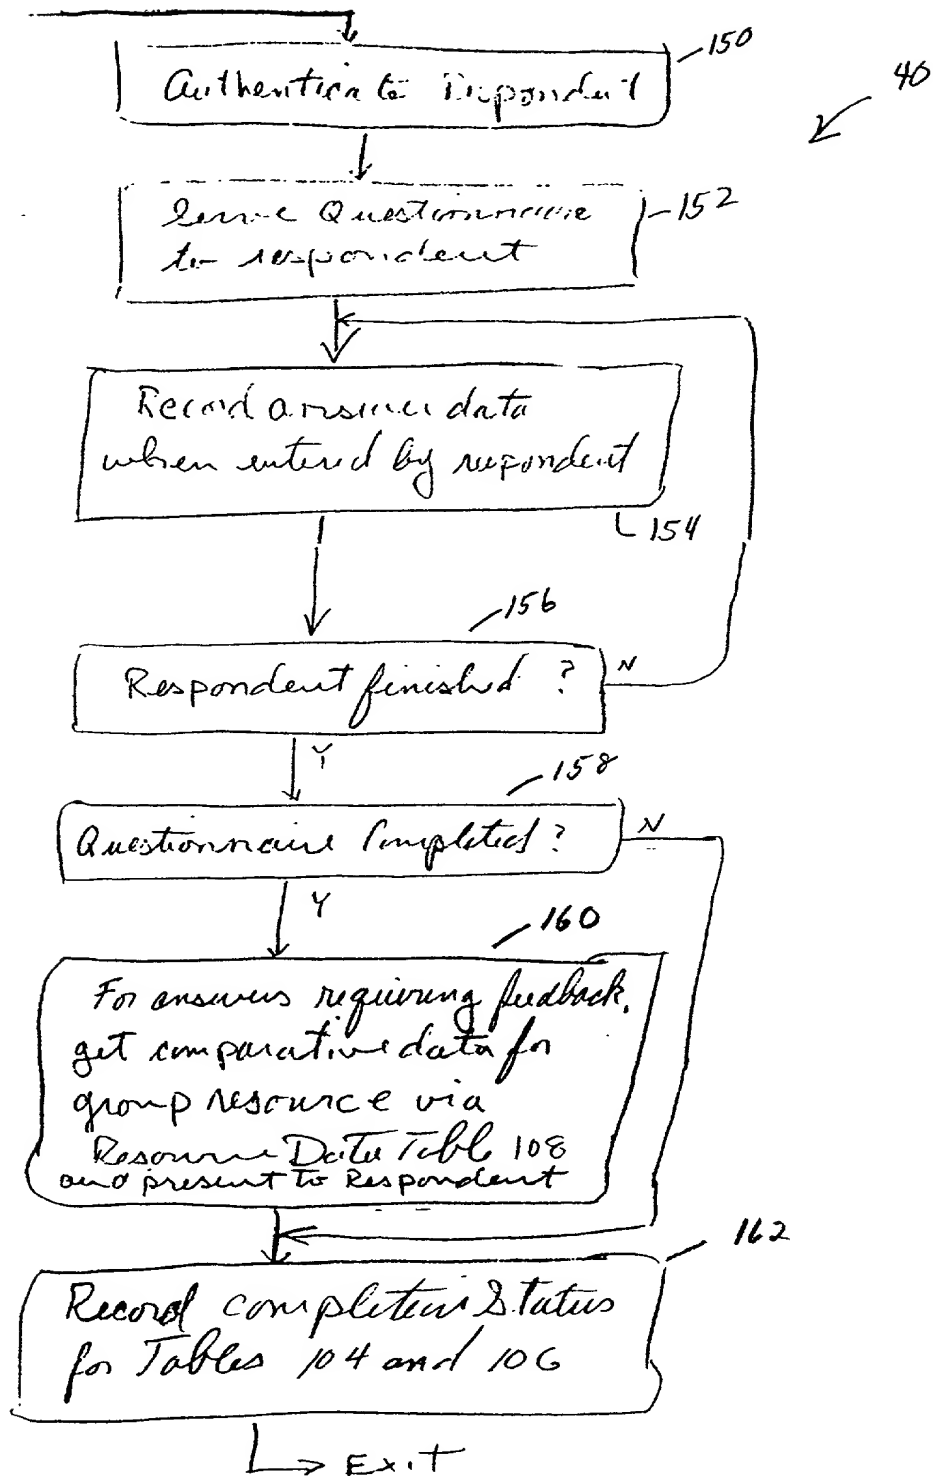 150
Authenticate respondent
40
Serve Questionnaire
152
to respondent
Record answer data
when entered by respondent
154
156
Respondent finished ?
N
Y
158
Questionnaire Completed ?
N
Y
160
For answers requiring feedback,
get comparative data for
group resource via
Resource Data Table 108
and present to Respondent
162
Record completion Status
for Tables 104 and 106
Exit